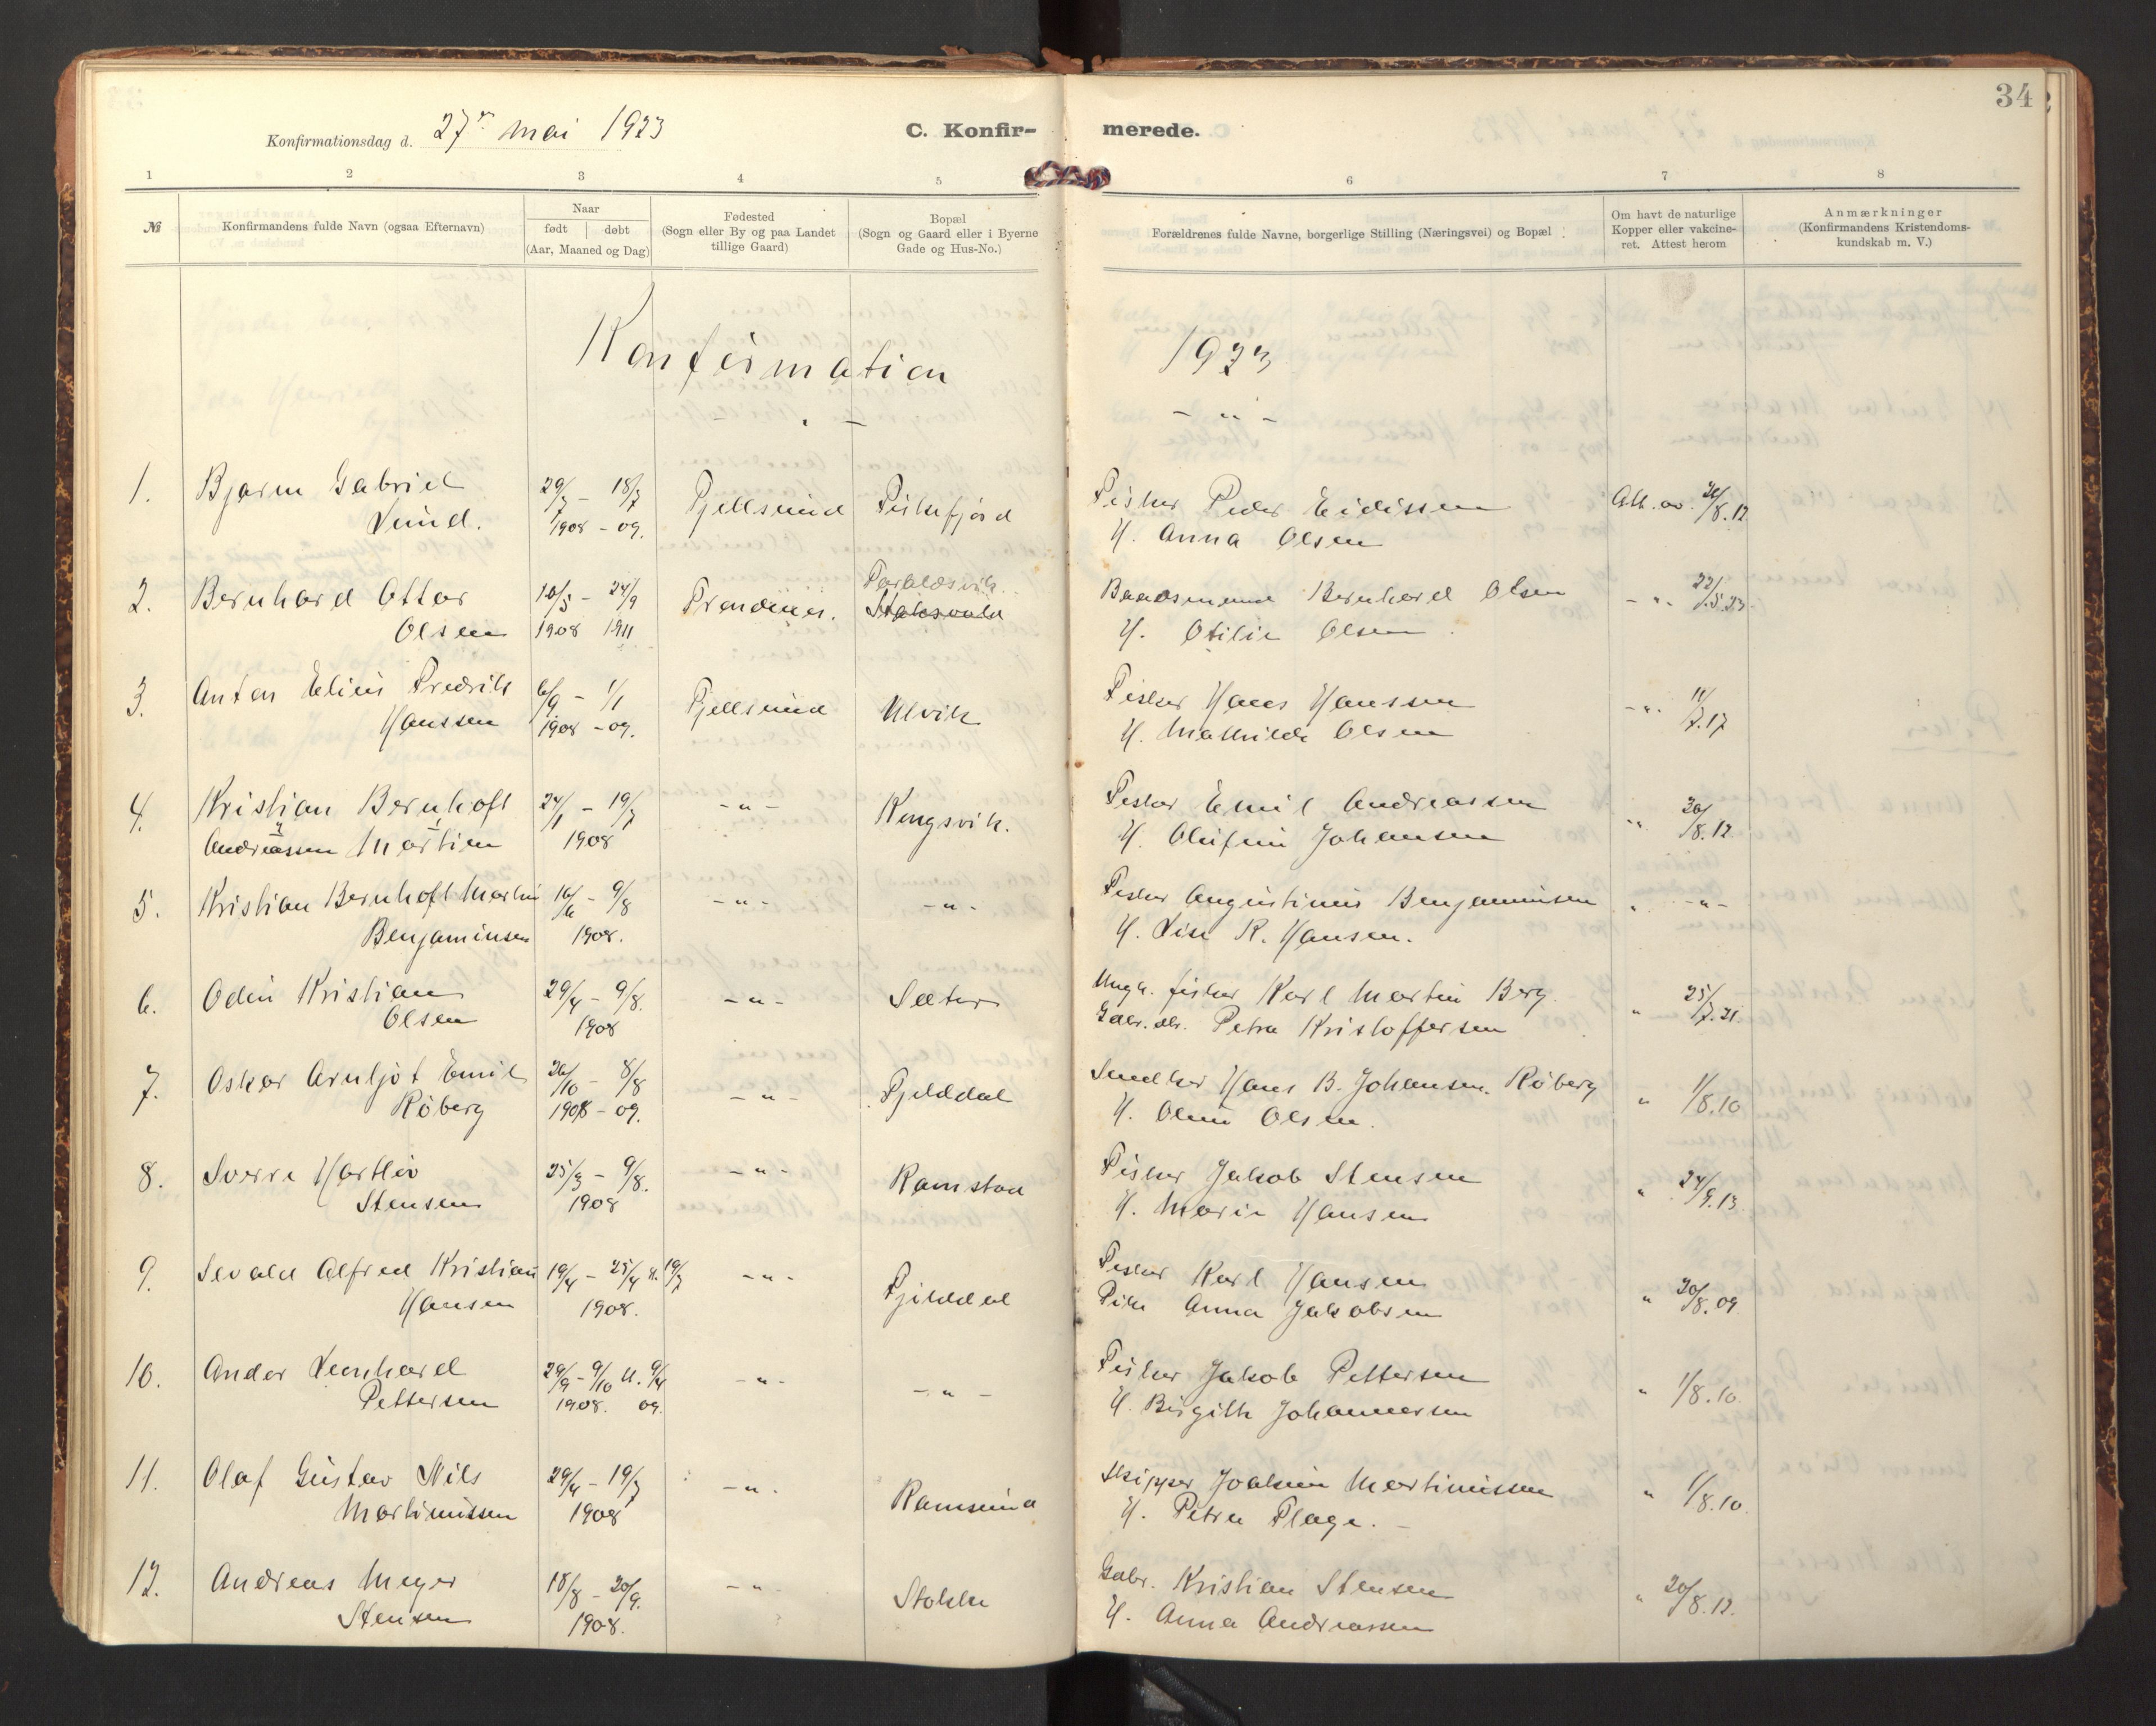 34
Konfirmationsdag d. 27de mai 1923
C. Konfirmerede.
1 2 3 4 5 6 7 8
№
Konfirmandens fulde Navn (ogsaa Efternavn)
Naar
født døbt
(Aar, Maaned og Dag)
Fødested
(Sogn eller By og paa Landet
tillige Gaard)
Bopæl
(Sogn og Gaard eller i Byerne
Gade og Hus-No.)
Forældrenes fulde Navne, borgerlige Stilling (Næringsvei) og Bopæl
Om havt de naturlige
Kopper eller vakcine-
ret. Attest herom
Anmærkninger
(Konfirmandens Kristendoms-
kundskab m. V.)
Konfirmation 1923
- " -
1. Bjarne Gabriel 29/7 - 18/7 Fjellsund Fiskefjord Fisker Peder Eidissen Att. av 20/8.12
Lund. 1908 - 09. H. Anna Olsen
2. Bernhard Ottar 10/5 - 24/9 Trondenes. Taraldsvik. Baadsmand Bernhard Olsen - " - 22/5.23
Olsen 1908 1911 H. Otilie Olsen
3. Anton Elius Fredrik 6/9 - 1/1 Fjellsund Ulvik Fisker Hans Hanssen - " - 11/7.17
Hanssen 1908 - 09. H. Mathilde Olsen
4. Kristian Bernhoft 24/1 - 19/7 - " - Kongsvik. Fisker Emil Andreassen " 20/8.12
Andreassen Martin 1908 H. Olufine Johansen
5. Kristian Bernhoft Martin 16/6 - 9/8 - " - - " - Fisker Augustinus Benjaminsen " - " -
Benjaminsen 1908. H. Lise R. Hansen.
6. Odin Kristian 29/4 - 9/8. - " - Sæter Ungk. fisker Karl Martin Berg " 25/7.21
Olsen 1908 Gaar. dtr. Petra Kristoffersen
7. Oskar Arnljot Emil 26/10 - 8/8 - " - Fjelddal Snedker Hans B. Johansen Röberg " 1/8.10
Röberg 1908 - 09. H. Oline Olsen.
8. Sverre Hartlev 25/3 - 9/8. - " - Ramstad Fisker Jakob Stensen " 24/9.13
Stensen 1908 H. Marie Hansen
9. Sevald Alfred Kristian 19/4 - 25/4 K. 19/7 - " - Fjelddal Fisker Karl Hansen " 30/8.09
Hansen 1908. Pike Anna Jakobsen
10. Ander Leonhard 29/9 - 9/10 K. 9/4 - " - - " - Fisker Jakob Pettersen " 1/8.10
Pettersen 1908. 09. H. Birgithe Johannesen
11. Olaf Gustav Nils 29/4 - 19/7 - " - Ramsund Skipper Joakim Martinussen " 1/8.10
Martinussen 1908 H. Petra Plage. -
12. Andreas Meyer 18/8 - 20/9. - " - Stokke Gabr. Kristian Stensen " 20/8.12.
Stensen 1908. H. Anna Andreassen